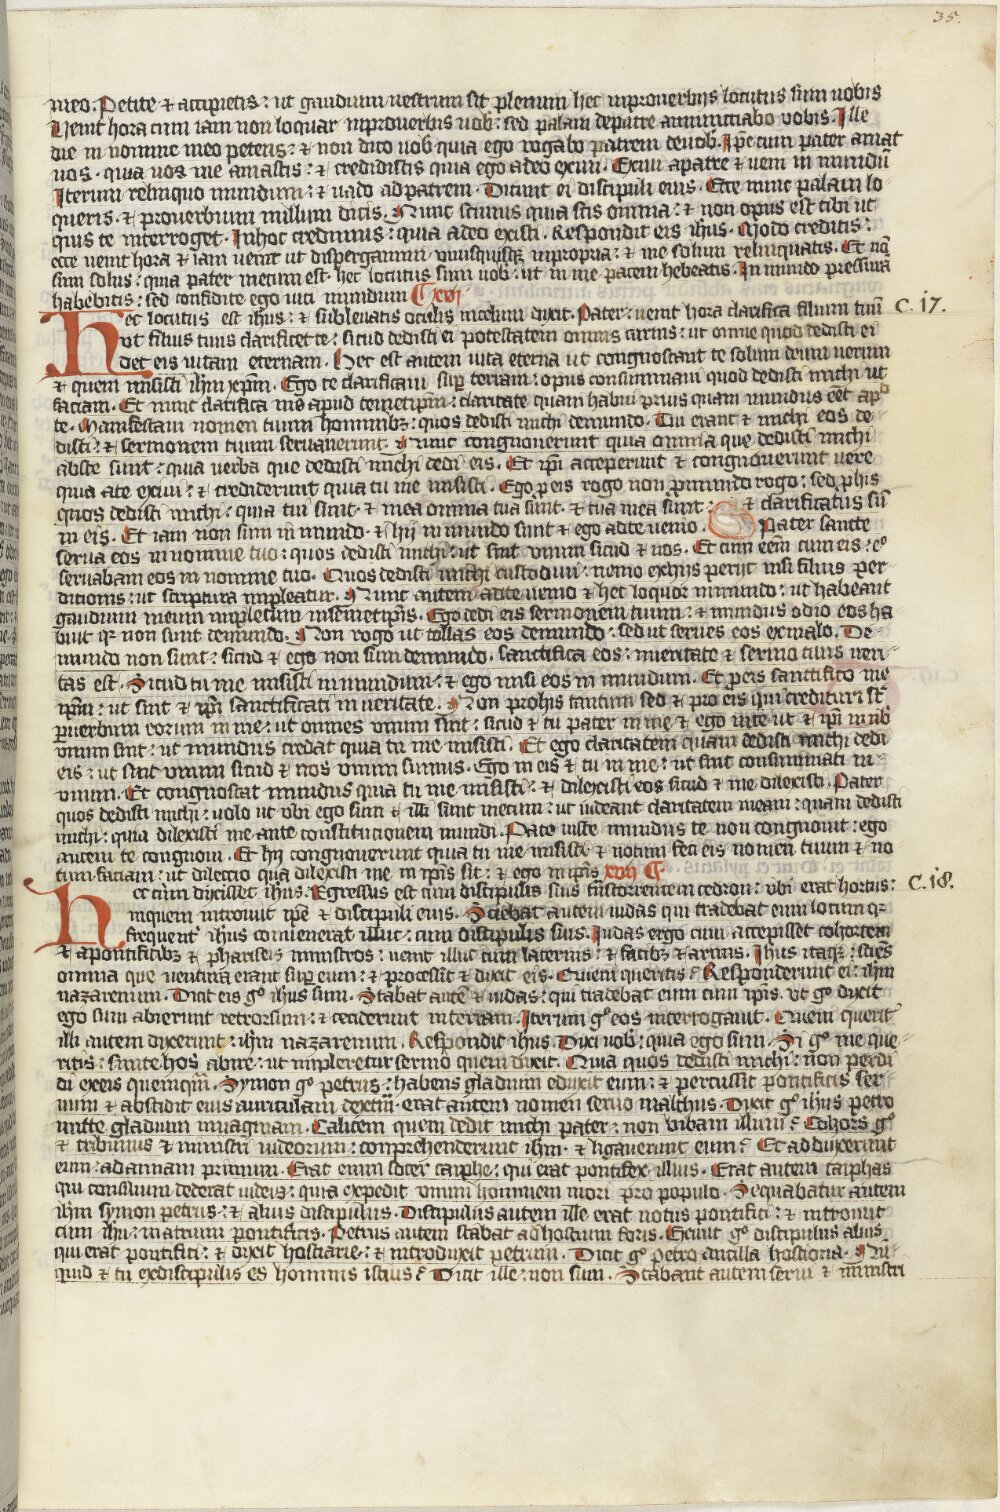 35.
meo. Petite ⁊ accipietis: ut gaudium uestrum sit plenum hec inprouerbijs locutus sum uobis
Uenit hora cum iam non loquar inprouerbis uob: sed palam depatre annunciabo vobis. Ille
die in nomine meo petetis: ⁊ non dico uob quia ego rogabo patrem deuob. Ipe cum pater amat
uos. quia uos me amastis: ⁊ credidistis quia ego adeo exiui. Exiui apatre ⁊ ueni in mundū
Iterum relinquo mundum: ⁊ uado adpatrem. Dicunt ei discipuli eius. Ecce nunc palam lo
queris. ⁊ prouerbium nullum dicis. Nunc scimus quia scis omnia: ⁊ non opus est tibi ut
quis te interroget. Inhoc credimus: quia adeo existi. Respondit eis ihus. Modo creditis:
ecce uenit hora ⁊ iam uenit ut dispergamini vnusquisqz inpropria: ⁊ me solum relinquatis. Et nō
sum solus: quia pater mecum est. hec locutus sum uob: ut in me pacem hebeatis. In mundo pressura
habebitis: sed confidite ego uici mundum C xvij
Hec locutus est ihus: ⁊ subleuatis oculis incelum dixit. Pater: uenit hora clarifica filium tuū C. 17.
vt filius tuus clarificet te: sicud dedisti ei potestatem omnis carnis: ut omne quod dedisti ei
det eis uitam eternam. Hec est autem uita eterna ut congnoscant te solum deum uerum
⁊ quem misisti ihm xpm. Ego te clarificaui sup terram: opus consummaui quod dedisti michi ut
faciam. Et nunc clarifica me apud temetipm: claritate quam habui prius quam mundus eēt ap
te. Manifestaui nomen tuum hominibz: quos dedisti michi demundo. Tui erant ⁊ michi eos de
disti: ⁊ sermonem tuum seruauerunt. Nunc congnouerunt quia omnia que dedisti michi
abste sunt: quia uerba que dedisti michi dedi eis. Et ipi acceperunt ⁊ congnouerunt uere
quia ate exiui: ⁊ crediderunt quia tu me misisti. Ego peis rogo non pmundo rogo: sed phis
quos dedisti michi: quia tui sunt. ⁊ mea omnia tua sunt. ⁊ tua mea sunt: ⁊ clarificatus sū
in eis. Et iam non sum in mundo. ⁊ hij in mundo sunt ⁊ ego adte uenio. Pater sancte
serua eos in nomine tuo: quos dedisti michi: ut sint vnum sicud ⁊ nos. Et cum eēm cum eis: eº
seruabam eos in nomine tuo. Quos dedisti michi custodiui: nemo exhijs perijt nisi filius per
ditionis: ut scriptura inpleatur. Nunc autem adte uenio ⁊ hec loquor inmundo: ut habeant
gaudium meum inpletum insemetipis. Ego dedi eis sermonem tuum: ⁊ mundus odio eos ha
buit qr non sunt demundo. Non rogo ut tollas eos demundo: sed ut serues eos exmalo. De
mundo non sunt: sicud ⁊ ego non sum demundo. sanctifica eos: inueritate ⁊ sermo tuus ueri
tas est. Sicud tu me misisti inmundum: ⁊ ego misi eos in mundum. Et peis sanctifico me
ipm: ut sint ⁊ ipi sanctificati in ueritate. Non prohis tantum sed ⁊ pro eis qui credituri st̄
puerbum eorum in me: ut omnes vnum sint: sicud ⁊ tu pater in me ⁊ ego inte ut ⁊ ipi in nob
vnum sint: ut mundus credat quia tu me misisti. Et ego claritatem quam dedisti michi dedi
eis: ut sint vnum sicud ⁊ nos vnum sumus. Ego in eis ⁊ tu in me: ut sint consummati in
vnum. Et congnoscat mundus quia tu me misisti: ⁊ dilexisti eos sicud ⁊ me dilexisti. Pater
quos dedisti michi: uolo ut vbi ego sum ⁊ illi sint mecum: ut uideant claritatem meam: quam dedisti
michi: quia dilexisti me ante constitutionem mundi. Pate iuste mundus te non congnouit: ego
autem te congnoui. Et hij congnouerunt quia tu me misisti ⁊ notum feci eis nomen tuum ⁊ no
tum faciam: ut dilectio qua dilexisti me in ipis sit: ⁊ ego in ipis xviij C.
Hec cum dixisset ihus: Egressus est cum discipulis suis tnstorrentem cedron: vbi erat hortus: C. 18.
inquem introiuit ipe ⁊ discipuli eius. Sciebat autem iudas qui tradebat eum locum qr
frequent ihus conuenerat illuc: cum discipulis suis. Iudas ergo cum accepisset cohortem
⁊ apontificibz ⁊ phariseis ministros: uenit illuc cum laternis: ⁊ facibz ⁊ armis. Ihus itaqz: sciēs
omnia que uentura erant sup eum: ⁊ processit ⁊ dixit eis. Quem queritis? Responderunt ei: ihm
nazarenum. Dicit eis gº ihus sum. Stabat autē ⁊ iudas: qui tradebat eum cum ipis. Vt gº dixit
ego sum abierunt retrorsum: ⁊ ceciderunt interram. Iterum gº eos interrogauit. Quem querit
illi autem dixerunt: ihm nazarenum. Respondit ihus. Dixi uob: quia ego sum. Si gº me que
ritis: sinite hos abire: ut impleretur sermo quem dixit. Quia quos dedisti michi: non perdi
di exeis quemqm. Symon gº petrus: habens gladium eduxit eum: ⁊ percussit pontificis ser
uum ⁊ abscidit eius auriculam dextm. erat autem nomen seruo malchus. Dixit gº ihus petro
mitte gladium inuaginam. Calicem quem dedit michi pater: non bibam illum? Cohors gº
⁊ tribunus ⁊ ministri iudeorum: comprehenderunt ihm. ⁊ ligauerunt eum? Et adduxerunt
eum: adannam primum. Erat enim socer caiphe: qui erat pontifex illius. Erat autem caiphas
qui consilium dederat iudeis: quia expedit vnum hominem mori pro populo. Sequabatur autem
ihm symon petrus: ⁊ alius discipulus. Discipulus autem ille erat notus pontifici: ⁊ introiuit
cum ihu: inatrium pontificis. Petrus autem stabat adhostium foris. Exiuit gº discipulus alius
qui erat pontifici: ⁊ dixit hostiarie: ⁊ introduxit petrum. Dicit gº petro ancilla hostiaria. Nu
quid ⁊ tu exdiscipulis es hominis istius? Dicit ille: non sum. Stabant autem serui ⁊ ministri